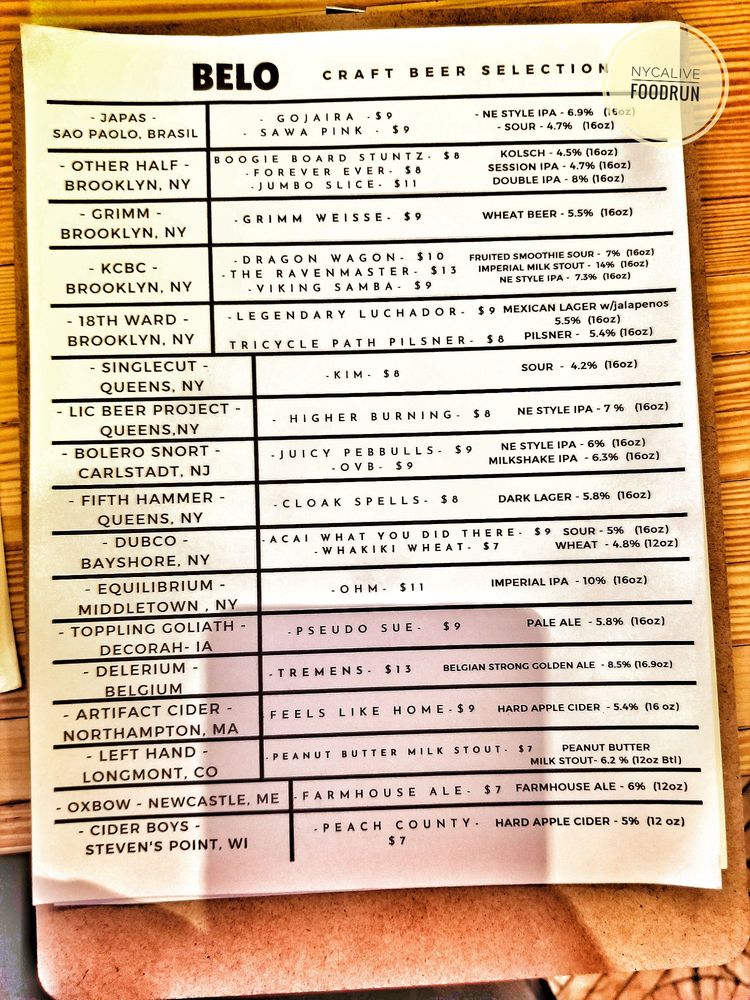 NYCALIVE
FOODRUN
BELO CRAFT BEER SELECTION
- JAPAS - - GOJAIRA -$9 - NE STYLE IPA - 6.9% (16oz)
SAO PAOLO, BRASIL - SAWA PINK - $9 - SOUR - 4.7% (16oz)
- OTHER HALF - BOOGIE BOARD STUNTZ- $8 KOLSCH - 4.5% (16oz)
BROOKLYN, NY -FOREVER EVER- $8 SESSION IPA - 4.7% (16oz)
-JUMBO SLICE- $11 DOUBLE IPA - 8% (16oz)
- GRIMM - -GRIMM WEISSE- $9 WHEAT BEER - 5.5% (16oz)
BROOKLYN, NY
- KCBC - -DRAGON WAGON- $10 FRUITED SMOOTHIE SOUR - 7% (16oz)
BROOKLYN, NY -THE RAVENMASTER- $13 IMPERIAL MILK STOUT - 14% (16oz)
-VIKING SAMBA- $9 NE STYLE IPA - 7.3% (16oz)
- 18TH WARD - -LEGENDARY LUCHADOR- $9 MEXICAN LAGER w/jalapenos
5.5% (16oz)
BROOKLYN, NY TRICYCLE PATH PILSNER- $8 PILSNER - 5.4% (16oz)
- SINGLECUT - -KIM- $8 SOUR - 4.2% (16oz)
QUEENS, NY
- LIC BEER PROJECT - - HIGHER BURNING- $8 NE STYLE IPA - 7 % (16oz)
QUEENS,NY
- BOLERO SNORT - -JUICY PEBBULLS- $9 NE STYLE IPA - 6% (16oz)
CARLSTADT, NJ -OVB- $9 MILKSHAKE IPA - 6.3% (16oz)
- FIFTH HAMMER - -CLOAK SPELLS- $8 DARK LAGER - 5.8% (16oz)
QUEENS, NY
- DUBCO - -ACAI WHAT YOU DID THERE- $9 SOUR - 5% (16oz)
BAYSHORE, NY -WHAKIKI WHEAT- $7 WHEAT - 4.8% (12oz)
- EQUILIBRIUM - -OHM- $11 IMPERIAL IPA - 10% (16oz)
MIDDLETOWN , NY
- TOPPLING GOLIATH - -PSEUDO SUE- $9 PALE ALE - 5.8% (16oz)
DECORAH- IA
- DELERIUM - -TREMENS- $13 BELGIAN STRONG GOLDEN ALE - 8.5% (16.9oz)
BELGIUM
- ARTIFACT CIDER - FEELS LIKE HOME-$9 HARD APPLE CIDER - 5.4% (16 oz)
NORTHAMPTON, MA
- LEFT HAND - -PEANUT BUTTER MILK STOUT- $7 PEANUT BUTTER
LONGMONT, CO MILK STOUT- 6.2 % (12oz Btl)
- OXBOW - NEWCASTLE, ME -FARMHOUSE ALE- $7 FARMHOUSE ALE - 6% (12oz)
- CIDER BOYS - -PEACH COUNTY- HARD APPLE CIDER - 5% (12 oz)
STEVEN'S POINT, WI $7